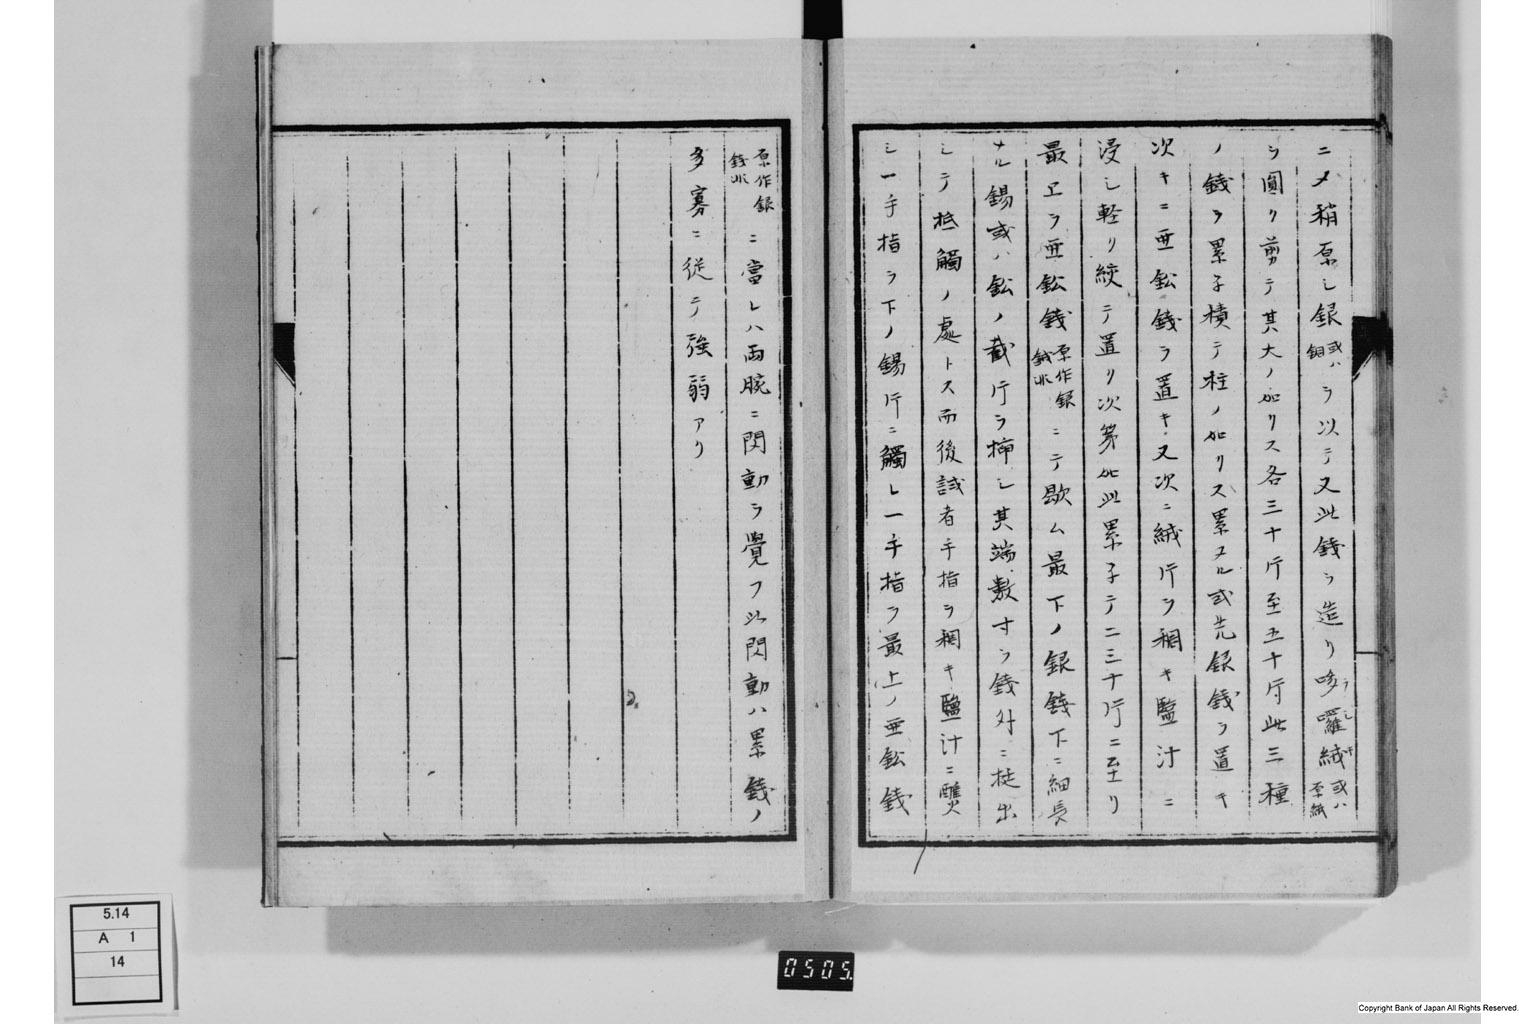 ニメ稍厚シ銀或ハ銅ヲ以テ又此錢ヲ造リ哆囉絨ラシャ或ハ厚紙
ヲ圓ク剪テ其大ノ如リス各三十片至五十片此三種
ノ錢ヲ累子積テ柱ノ如リス累ヌル或先銀錢ヲ置キ
次キニ亜鈆錢ヲ置キ又次ニ絨片ヲ稠キ鹽汁ニ
浸シ軽リ絞テ置リ次第如此累子テ二三十片ニ至リ
最上ヲ亜鈆錢原作銀錢非ニテ歇ム最下ノ銀錢下ニ細長
ナル錫或ハ鈆ノ截片ヲ挿シ其端数寸ヲ錢外ニ挺出
シテ抵觸ノ處トス而後試者手指ヲ稠キ鹽汁ニ蘸
シ一手指ヲ下ノ錫片ニ觸レ一手指ヲ最上ノ亜鈆錢
原作銀錢非ニ當レハ両腕ニ閃動ヲ覺フ此閃動ハ累錢ノ
多寡ニ従テ強弱アリ
5.14
A 1
14
0505.
Copyright Bank of Japan All Rights Reserved.